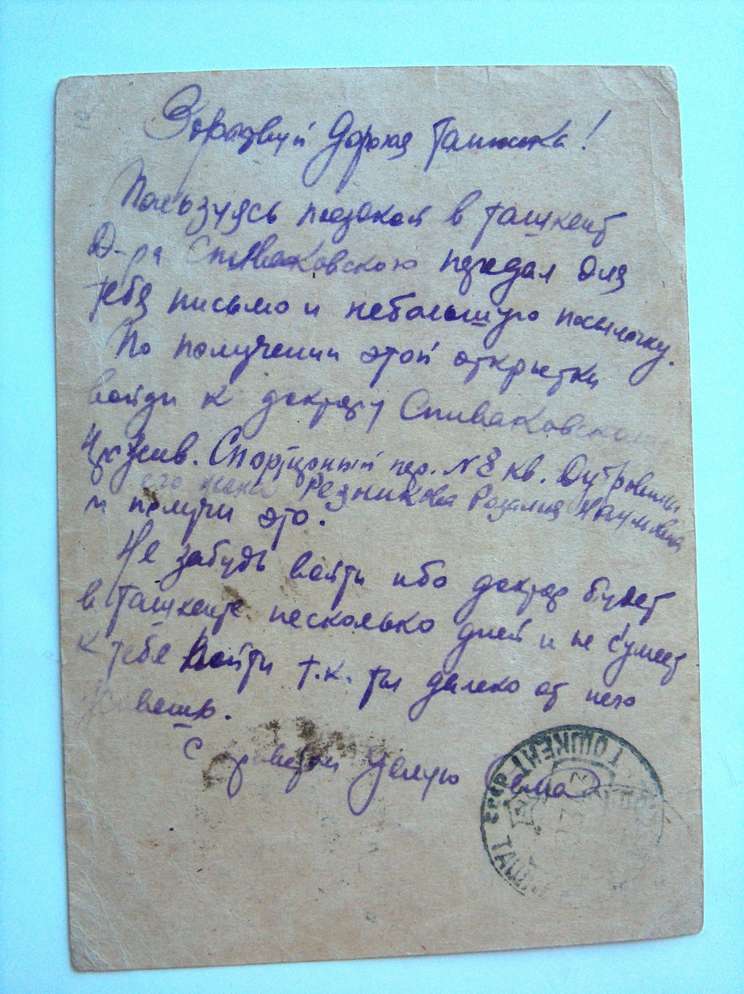 Здравствуй Дорогая Танюшка!
Пользуясь поездкой в Ташкент
Д-ра Спиваковского передал для
тебя письмо и небольшую посылочку.
По получении этой открытки
зайди к доктору Спиваковскому
Спортивный пер. № 8 кв.
его жена Резникова Розалия Наумовна
и получи это.
Не забудь зайти ибо доктор будет
в Ташкенте несколько дней и не сумеет
к тебе зайти т.к. ты далеко от него
живешь.
С приветом целую Сема
ТОШКЕНТ
ТАШ